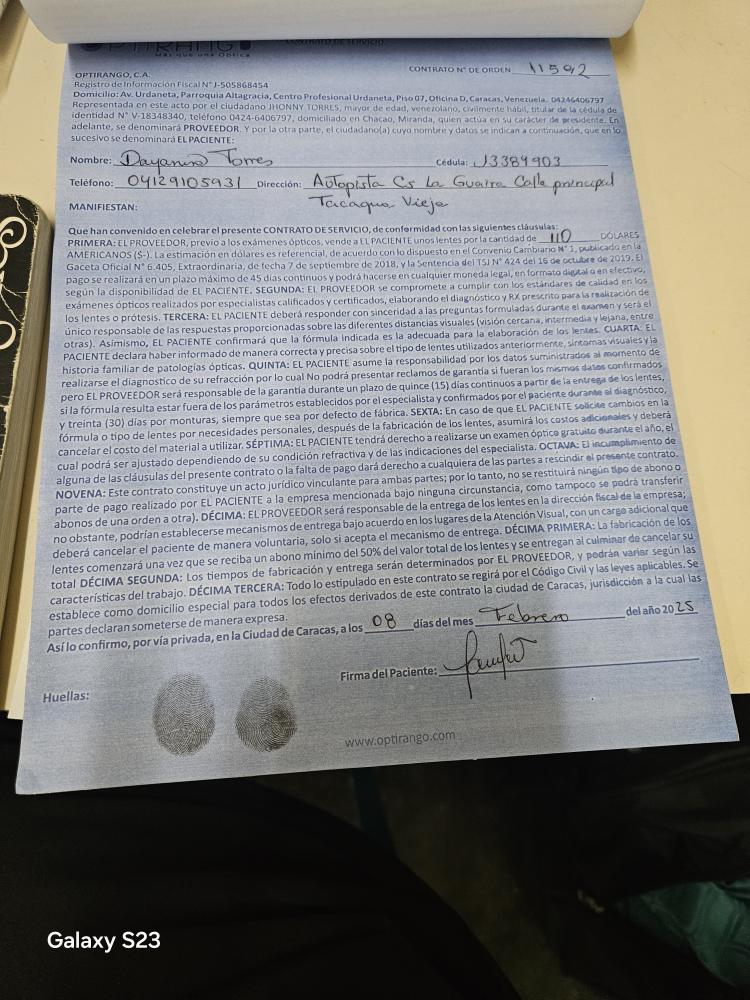 OPTIRANGO
Más que una Óptica
CONTRATO DE SERVICIO
CONTRATO N° DE ORDEN 11592
OPTIRANGO, C.A.
Registro de Información Fiscal N° J-505868454
Domicilio: Av. Urdaneta, Parroquia Altagracia, Centro Profesional Urdaneta, Piso 07, Oficina D, Caracas, Venezuela. 04246406797
Representada en este acto por el ciudadano JHONNY TORRES, mayor de edad, venezolano, civilmente hábil, titular de la cédula de
identidad N° V-18348340, teléfono 0424-6406797, domiciliado en Chacao, Miranda, quien actúa en su carácter de presidente. En
adelante, se denominará PROVEEDOR. Y por la otra parte, el ciudadano(a) cuyo nombre y datos se indican a continuación, que en lo
sucesivo se denominará EL PACIENTE:
Nombre: Dayanira Torres Cédula: 13384903
Teléfono: 04129105931 Dirección: Autopista Cs La Guaira Calle principal
Tacagua Vieja
MANIFIESTAN:
Que han convenido en celebrar el presente CONTRATO DE SERVICIO, de conformidad con las siguientes cláusulas:
PRIMERA: EL PROVEEDOR, previo a los exámenes ópticos, vende a EL PACIENTE unos lentes por la cantidad de 110 DÓLARES
AMERICANOS ($-). La estimación en dólares es referencial, de acuerdo con lo dispuesto en el Convenio Cambiario N° 1, publicado en la
Gaceta Oficial N° 6.405, Extraordinaria, de fecha 7 de septiembre de 2018, y la Sentencia del TSJ N° 424 del 16 de octubre de 2019. El
pago se realizará en un plazo máximo de 45 días continuos y podrá hacerse en cualquier moneda legal, en formato digital o en efectivo,
según la disponibilidad de EL PACIENTE. SEGUNDA: EL PROVEEDOR se compromete a cumplir con los estándares de calidad en los
exámenes ópticos realizados por especialistas calificados y certificados, elaborando el diagnóstico y RX prescrito para la realización de
los lentes o prótesis. TERCERA: EL PACIENTE deberá responder con sinceridad a las preguntas formuladas durante el examen y será el
único responsable de las respuestas proporcionadas sobre las diferentes distancias visuales (visión cercana, intermedia y lejana, entre
otras). Asimismo, EL PACIENTE confirmará que la fórmula indicada es la adecuada para la elaboración de los lentes. CUARTA: EL
PACIENTE declara haber informado de manera correcta y precisa sobre el tipo de lentes utilizados anteriormente, síntomas visuales y la
historia familiar de patologías ópticas. QUINTA: EL PACIENTE asume la responsabilidad por los datos suministrados al momento de
realizarse el diagnostico de su refracción por lo cual No podrá presentar reclamos de garantía si fueran los mismos datos confirmados
pero EL PROVEEDOR será responsable de la garantía durante un plazo de quince (15) días continuos a partir de la entrega de los lentes,
si la fórmula resulta estar fuera de los parámetros establecidos por el especialista y confirmados por el paciente durante el diagnóstico,
y treinta (30) días por monturas, siempre que sea por defecto de fábrica. SEXTA: En caso de que EL PACIENTE solicite cambios en la
fórmula o tipo de lentes por necesidades personales, después de la fabricación de los lentes, asumirá los costos adicionales y deberá
cancelar el costo del material a utilizar. SÉPTIMA: EL PACIENTE tendrá derecho a realizarse un examen óptico gratuito durante el año, el
cual podrá ser ajustado dependiendo de su condición refractiva y de las indicaciones del especialista. OCTAVA: El incumplimiento de
alguna de las cláusulas del presente contrato o la falta de pago dará derecho a cualquiera de las partes a rescindir el presente contrato.
NOVENA: Este contrato constituye un acto jurídico vinculante para ambas partes; por lo tanto, no se restituirá ningún tipo de abono o
parte de pago realizado por EL PACIENTE a la empresa mencionada bajo ninguna circunstancia, como tampoco se podrá transferir
abonos de una orden a otra). DÉCIMA: EL PROVEEDOR será responsable de la entrega de los lentes en la dirección fiscal de la empresa;
no obstante, podrían establecerse mecanismos de entrega bajo acuerdo en los lugares de la Atención Visual, con un cargo adicional que
deberá cancelar el paciente de manera voluntaria, solo si acepta el mecanismo de entrega. DÉCIMA PRIMERA: La fabricación de los
lentes comenzará una vez que se reciba un abono mínimo del 50% del valor total de los lentes y se entregan al culminar de cancelar su
total DÉCIMA SEGUNDA: Los tiempos de fabricación y entrega serán determinados por EL PROVEEDOR, y podrán variar según las
características del trabajo. DÉCIMA TERCERA: Todo lo estipulado en este contrato se regirá por el Código Civil y las leyes aplicables. Se
establece como domicilio especial para todos los efectos derivados de este contrato la ciudad de Caracas, jurisdicción a la cual las
partes declaran someterse de manera expresa.
Así lo confirmo, por vía privada, en la Ciudad de Caracas, a los 08 días del mes Febrero del año 2025
Firma del Paciente:
Huellas:
www.optirango.com
Galaxy S23